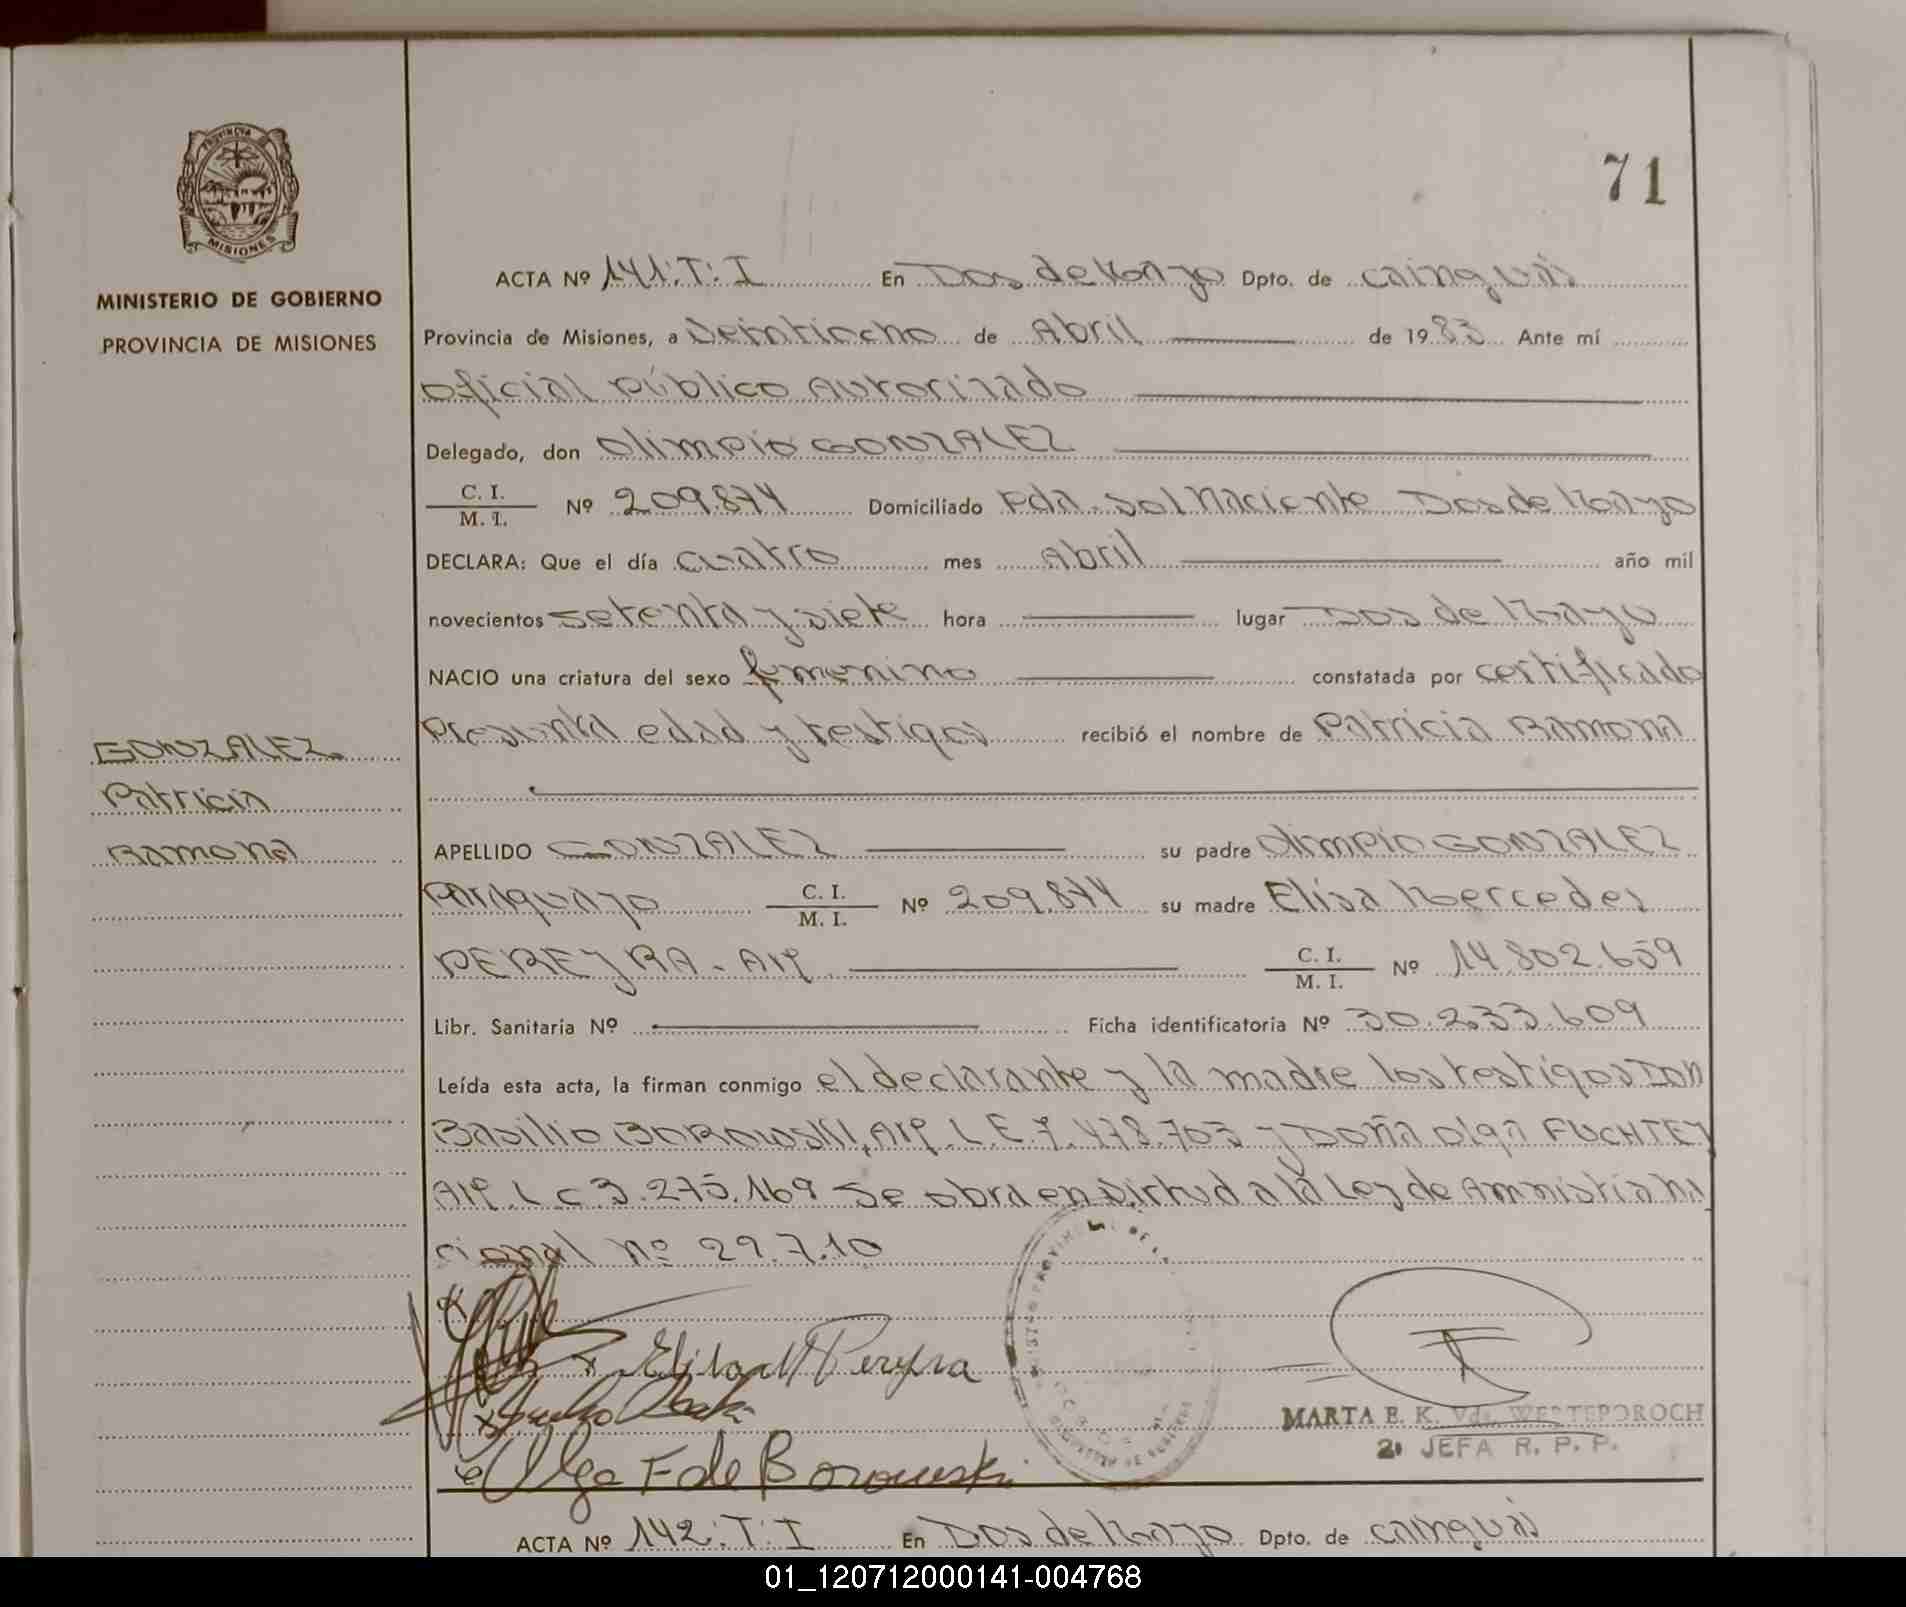 71
PROVINCIA
MISIONES
MINISTERIO DE GOBIERNO
PROVINCIA DE MISIONES
ACTA Nº 141:T:I En Dos de Mayo Dpto. de Cainguás
Provincia de Misiones, a Veintiocho de Abril de 1983 Ante mí
Oficial Público Autorizado
Delegado, don Olimpio GONZALEZ
C. I.
M. I. Nº 209.874 Domiciliado Pda. Sol Naciente Dos de Mayo
DECLARA: Que el día cuatro mes Abril año mil
novecientos setenta y siete hora lugar Dos de Mayo
NACIO una criatura del sexo femenino constatada por certificado
Presunta edad y testigos recibió el nombre de Patricia Ramona
GONZALEZ
Patricia
Ramona
APELLIDO GONZALEZ su padre Olimpio GONZALEZ
Paraguayo C. I.
M. I. Nº 209.874 su madre Elisa Mercedes
PEREYRA - Arg. C. I.
M. I. Nº 14.802.659
Libr. Sanitaria Nº Ficha identificatoria Nº 30.233.609
Leída esta acta, la firman conmigo el declarante y la madre los testigos Don
Basilio BOROWSKI, Arg. L.E. 7.478.703 y Doña Olga FUCHTEY
Arg. L.C 3.275.169 Se obra en virtud a la Ley de Amnistia Na
cional Nº 22.7.10
x Elisa M Pereyra
Olga F de Borowski
MARTA E. K. Vda. WESTEPOROCH
2ª JEFA R. P. P.
ACTA Nº 142:T:I En Dos de Mayo Dpto. de Cainguás
01_120712000141-004768